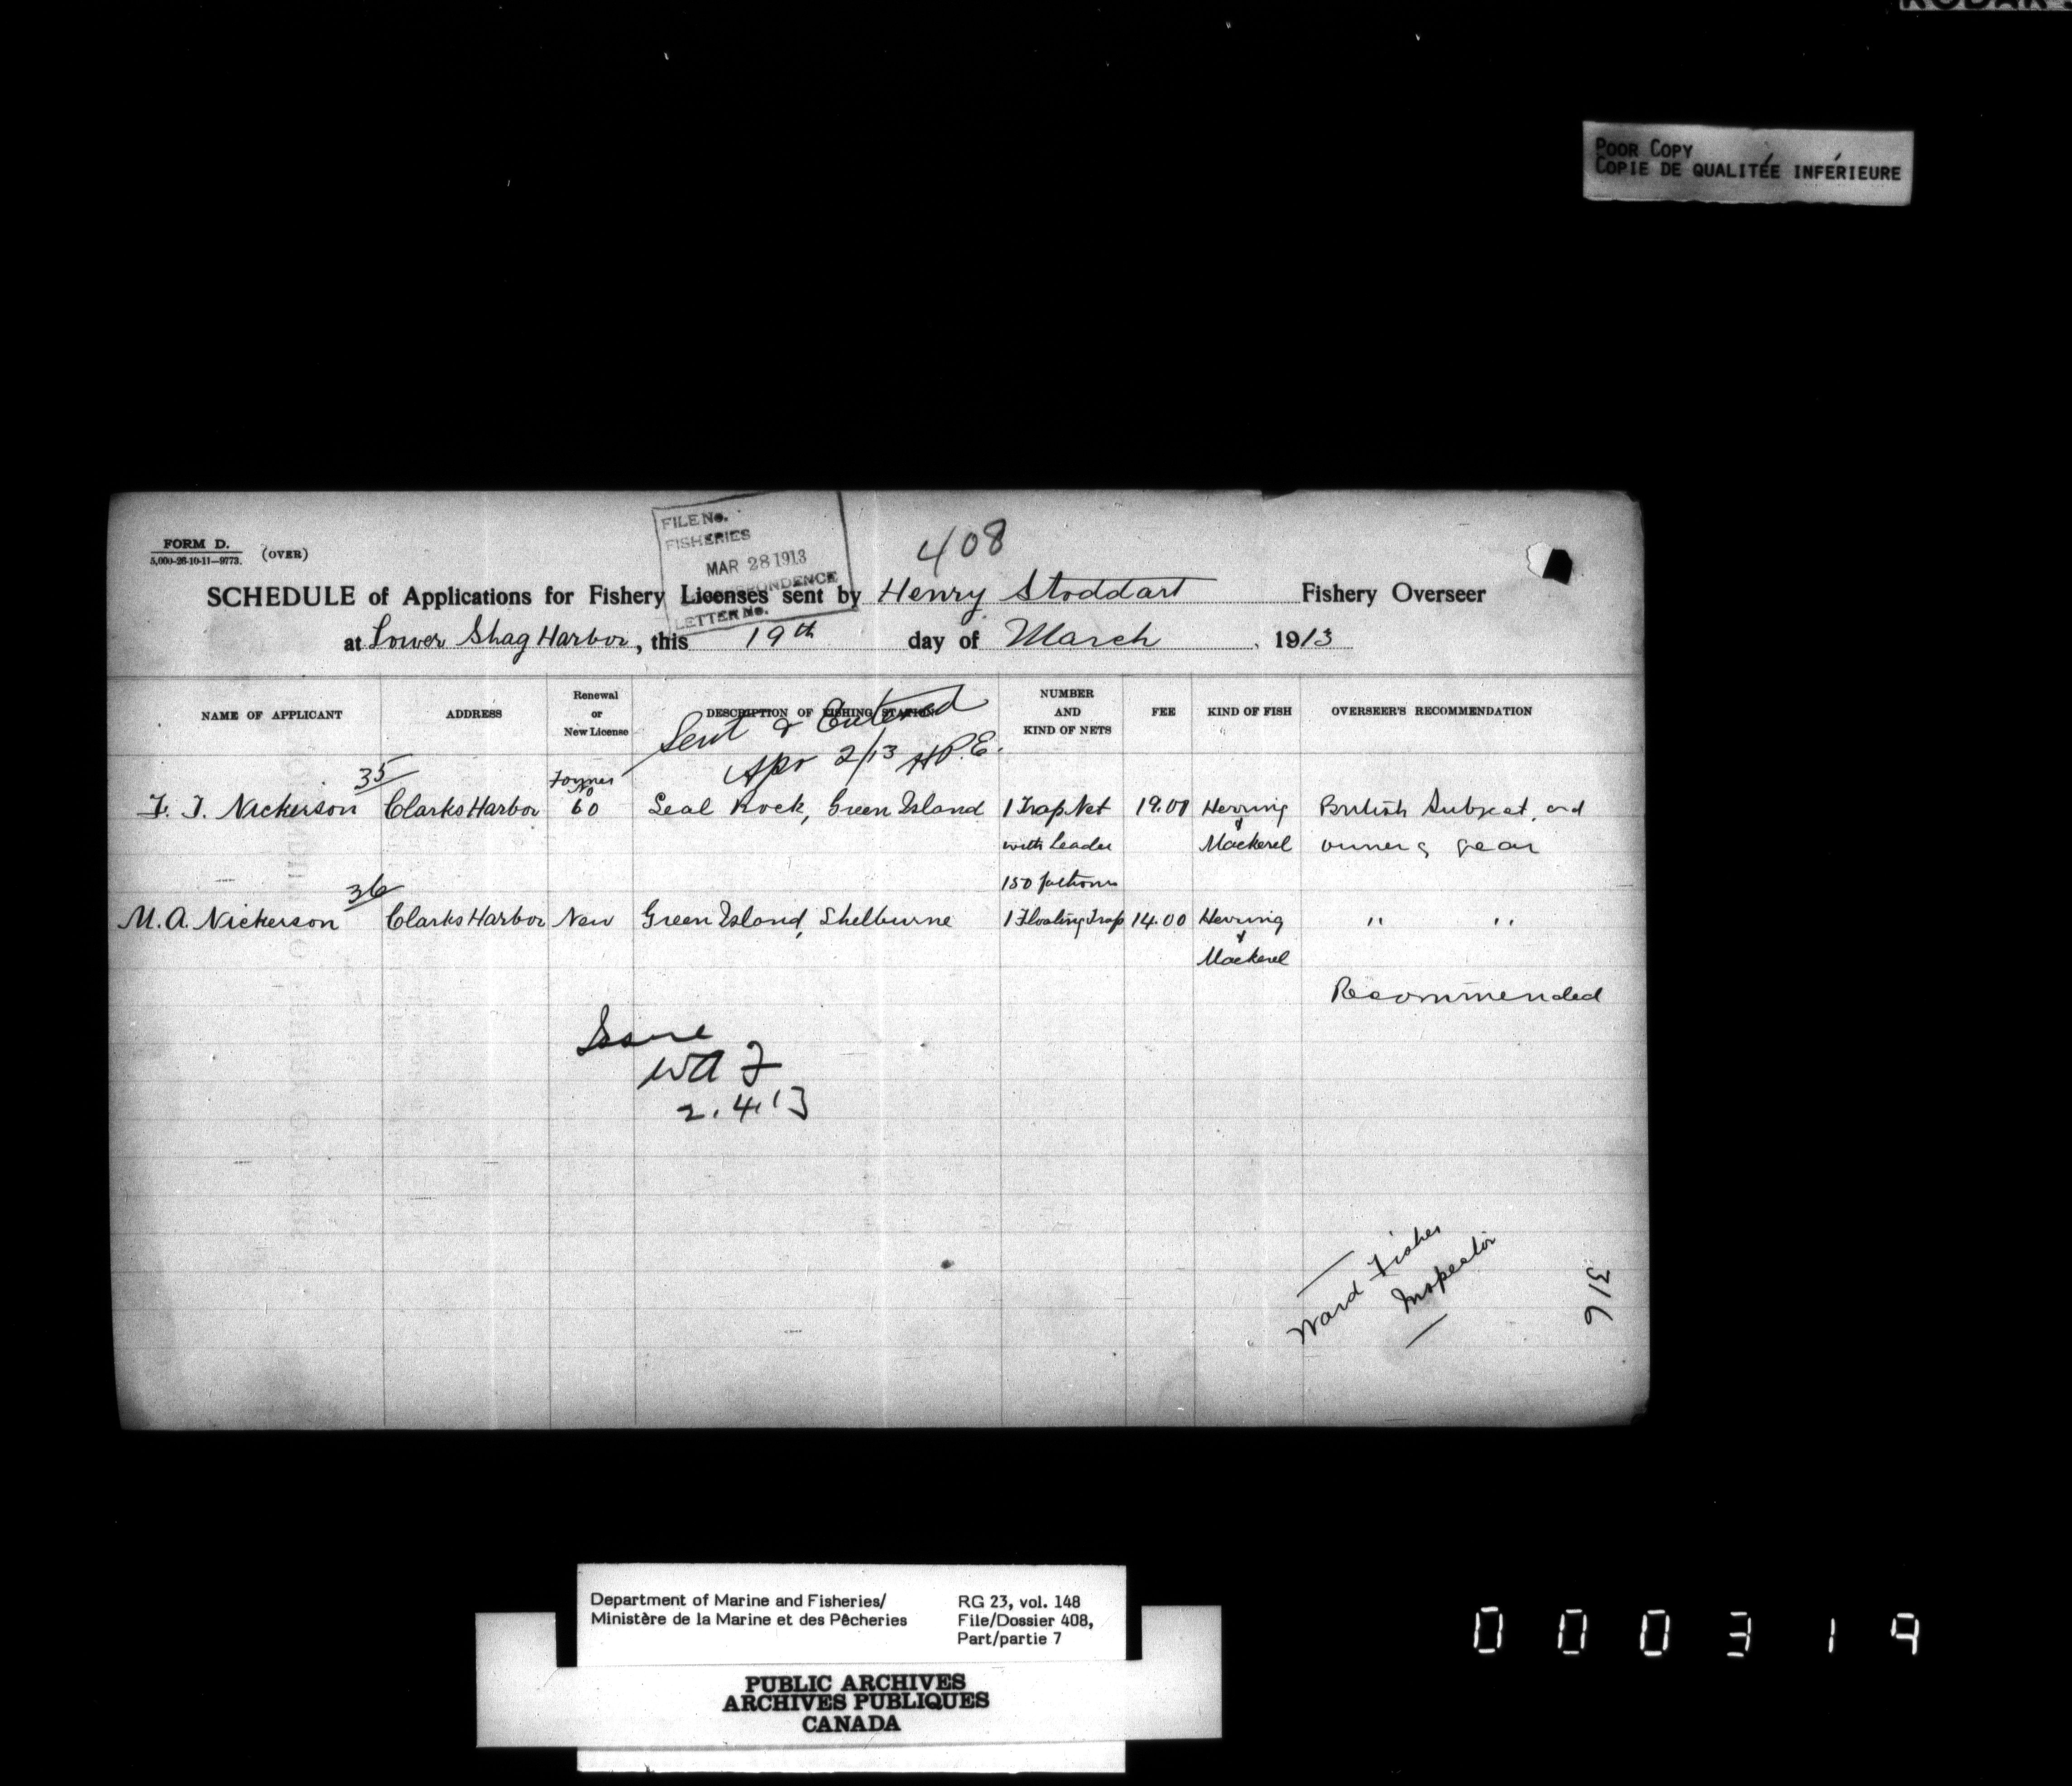 KODAK S
POOR COPY
COPIE DE QUALITÉE INFÉRIEURE
FORM D. (OVER)
5,000-26-10-11—9773.
FILE No.
FISHERIES
MAR 28 1913
CORRESPONDENCE
LETTER No.
408
SCHEDULE of Applications for Fishery Licenses sent by Henry Stoddart Fishery Overseer
at Lower Shag Harbor, this 19th day of March 1913
NAME OF APPLICANT ADDRESS Renewal or New License DESCRIPTION OF FISHING STATION NUMBER AND KIND OF NETS FEE KIND OF FISH OVERSEER'S RECOMMENDATION
Sent & Entered
Apr 2/13 H.P.E.
35 Former No
F. T. Nickerson Clarks Harbor 60 Seal Rock, Green Island 1 Trap Net 19.00 Herring British Subject, and
with Leader & Mackerel owner of gear
36 150 fathoms
M. A. Nickerson Clarks Harbor New Green Island, Shelburne 1 Floating Trap 14.00 Herring " "
& Mackerel
Recommended
Issue
WA F
2.4.13
Ward Fisher
Inspector
316
Department of Marine and Fisheries/
Ministère de la Marine et des Pêcheries
RG 23, vol. 148
File/Dossier 408,
Part/partie 7
PUBLIC ARCHIVES
ARCHIVES PUBLIQUES
CANADA
000319